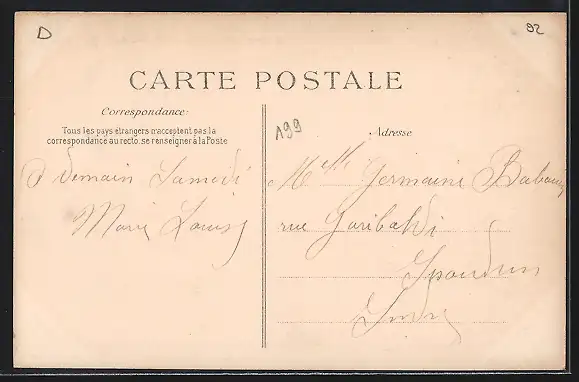 D
92
CARTE POSTALE
Correspondance:
Tous les pays étrangers n'acceptent pas la
correspondance au recto, se renseigner à la Poste
199
Adresse
à Demain Samedi
Marie Louise
Melle Germaine
rue Garibaldi
Issoudun
Indre